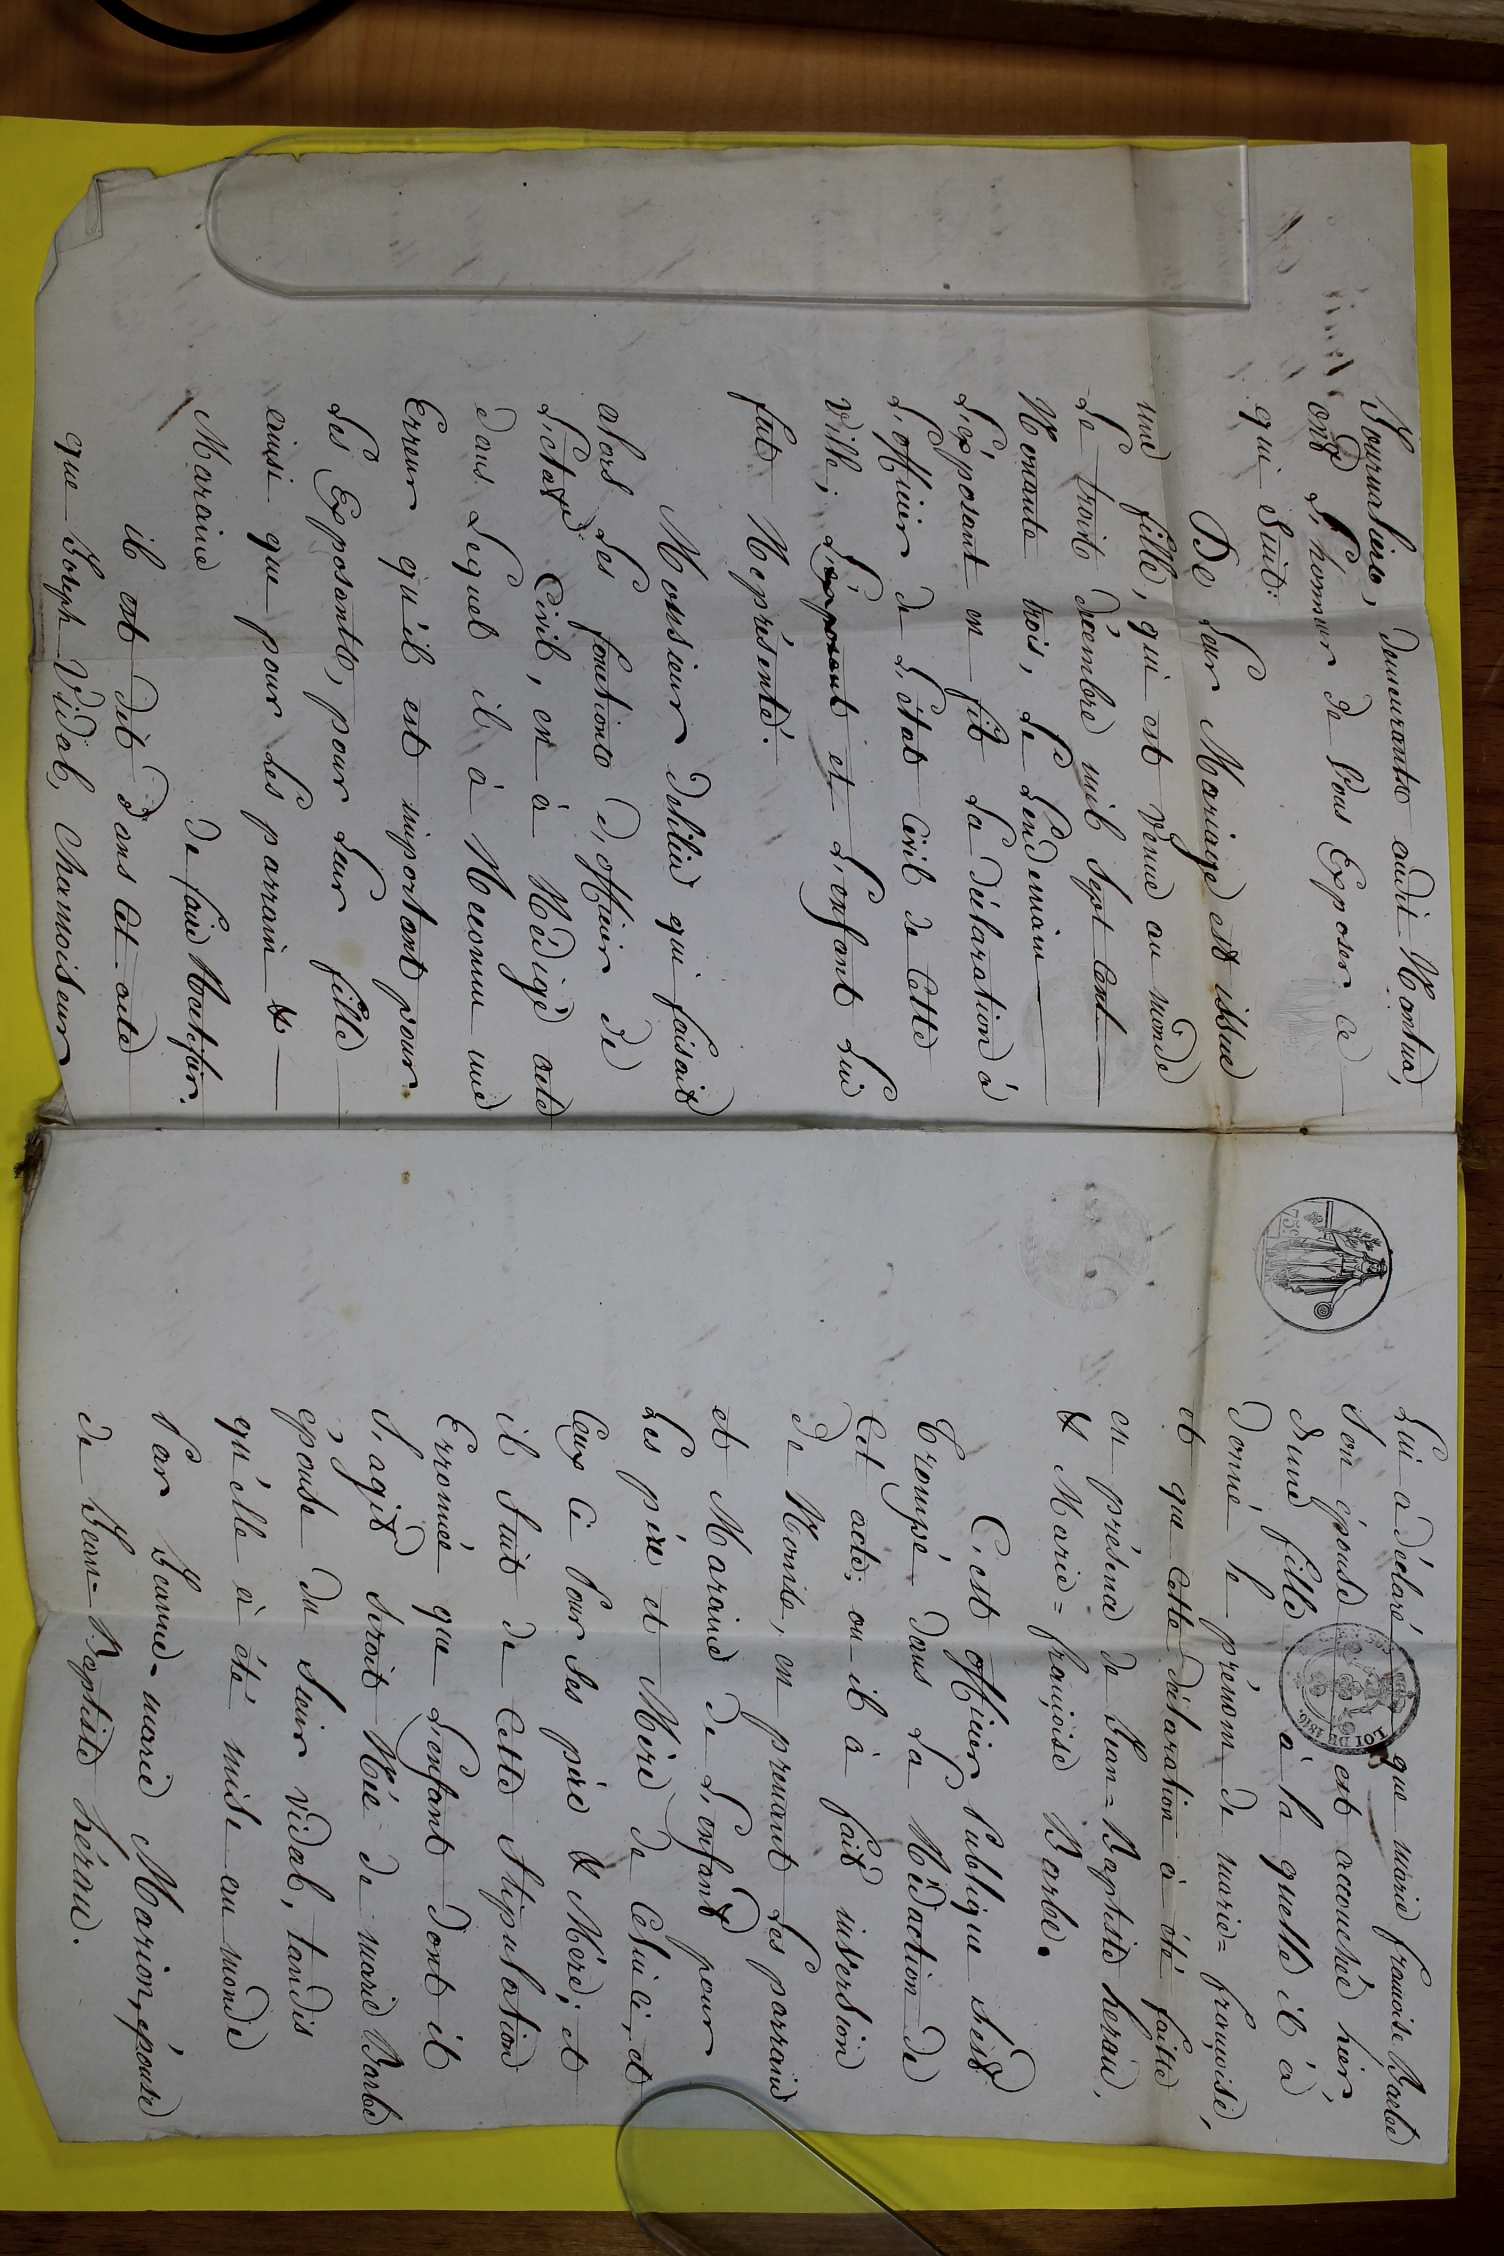 Journaliere, demeurants audit Nantua,
ont L'honneur de Vous Exposer ce
qui Suit:
De Leur Mariage est issue
une fille, qui est venue au monde
Le trois décembre mil Sept Cent
Nonante trois, Le Lendemain
L'exposant en fit La déclaration à
L'officier de L'état Civil de Cette
Ville; L'exposant et L'enfant Lui
fut Représenté.
Monsieur qui faisait
alors Les fonctions d'officier de
L'etat Civil, en à Rédigé acte
dans Lequel il à Reconnu une
Erreur qu'il est important pour
Les Exposants, pour Leur fille
ainsi que pour Les parrain &
Maraine de faire
il est dit dans Cet acte
que Joseph Vidal, Chamoiseur
75c
Lui a déclaré que marie françoise Barbe
Son épouse est accouchée hier
d'une fille à la quelle il à
Donné le prénom de marie=françoise,
et que Cette déclaration à été faitte
en présence de Jean=Baptiste herau,
& Marie=françoise Barbe.
LOI DE 1816.
C'est officier Publique s'est
Trompé dans La Rédaction de
Cet acte; ou il à fait insertion
de Noms, en prenant Les parrain
et Maraine de L'enfant pour
Les père et Mère de Celui ci, et
Ceux Ci Pour Ses père & Mère; et
il Suit de Cette Stipulation
Erronnée que L'enfant dont il
S'agit seroit Née de marie Barbe
épouse du Sieur vidal, tandis
qu'elle à été mise au monde
Par Jeanne-marie Marion, épouse
de Jean-Baptiste hérau.